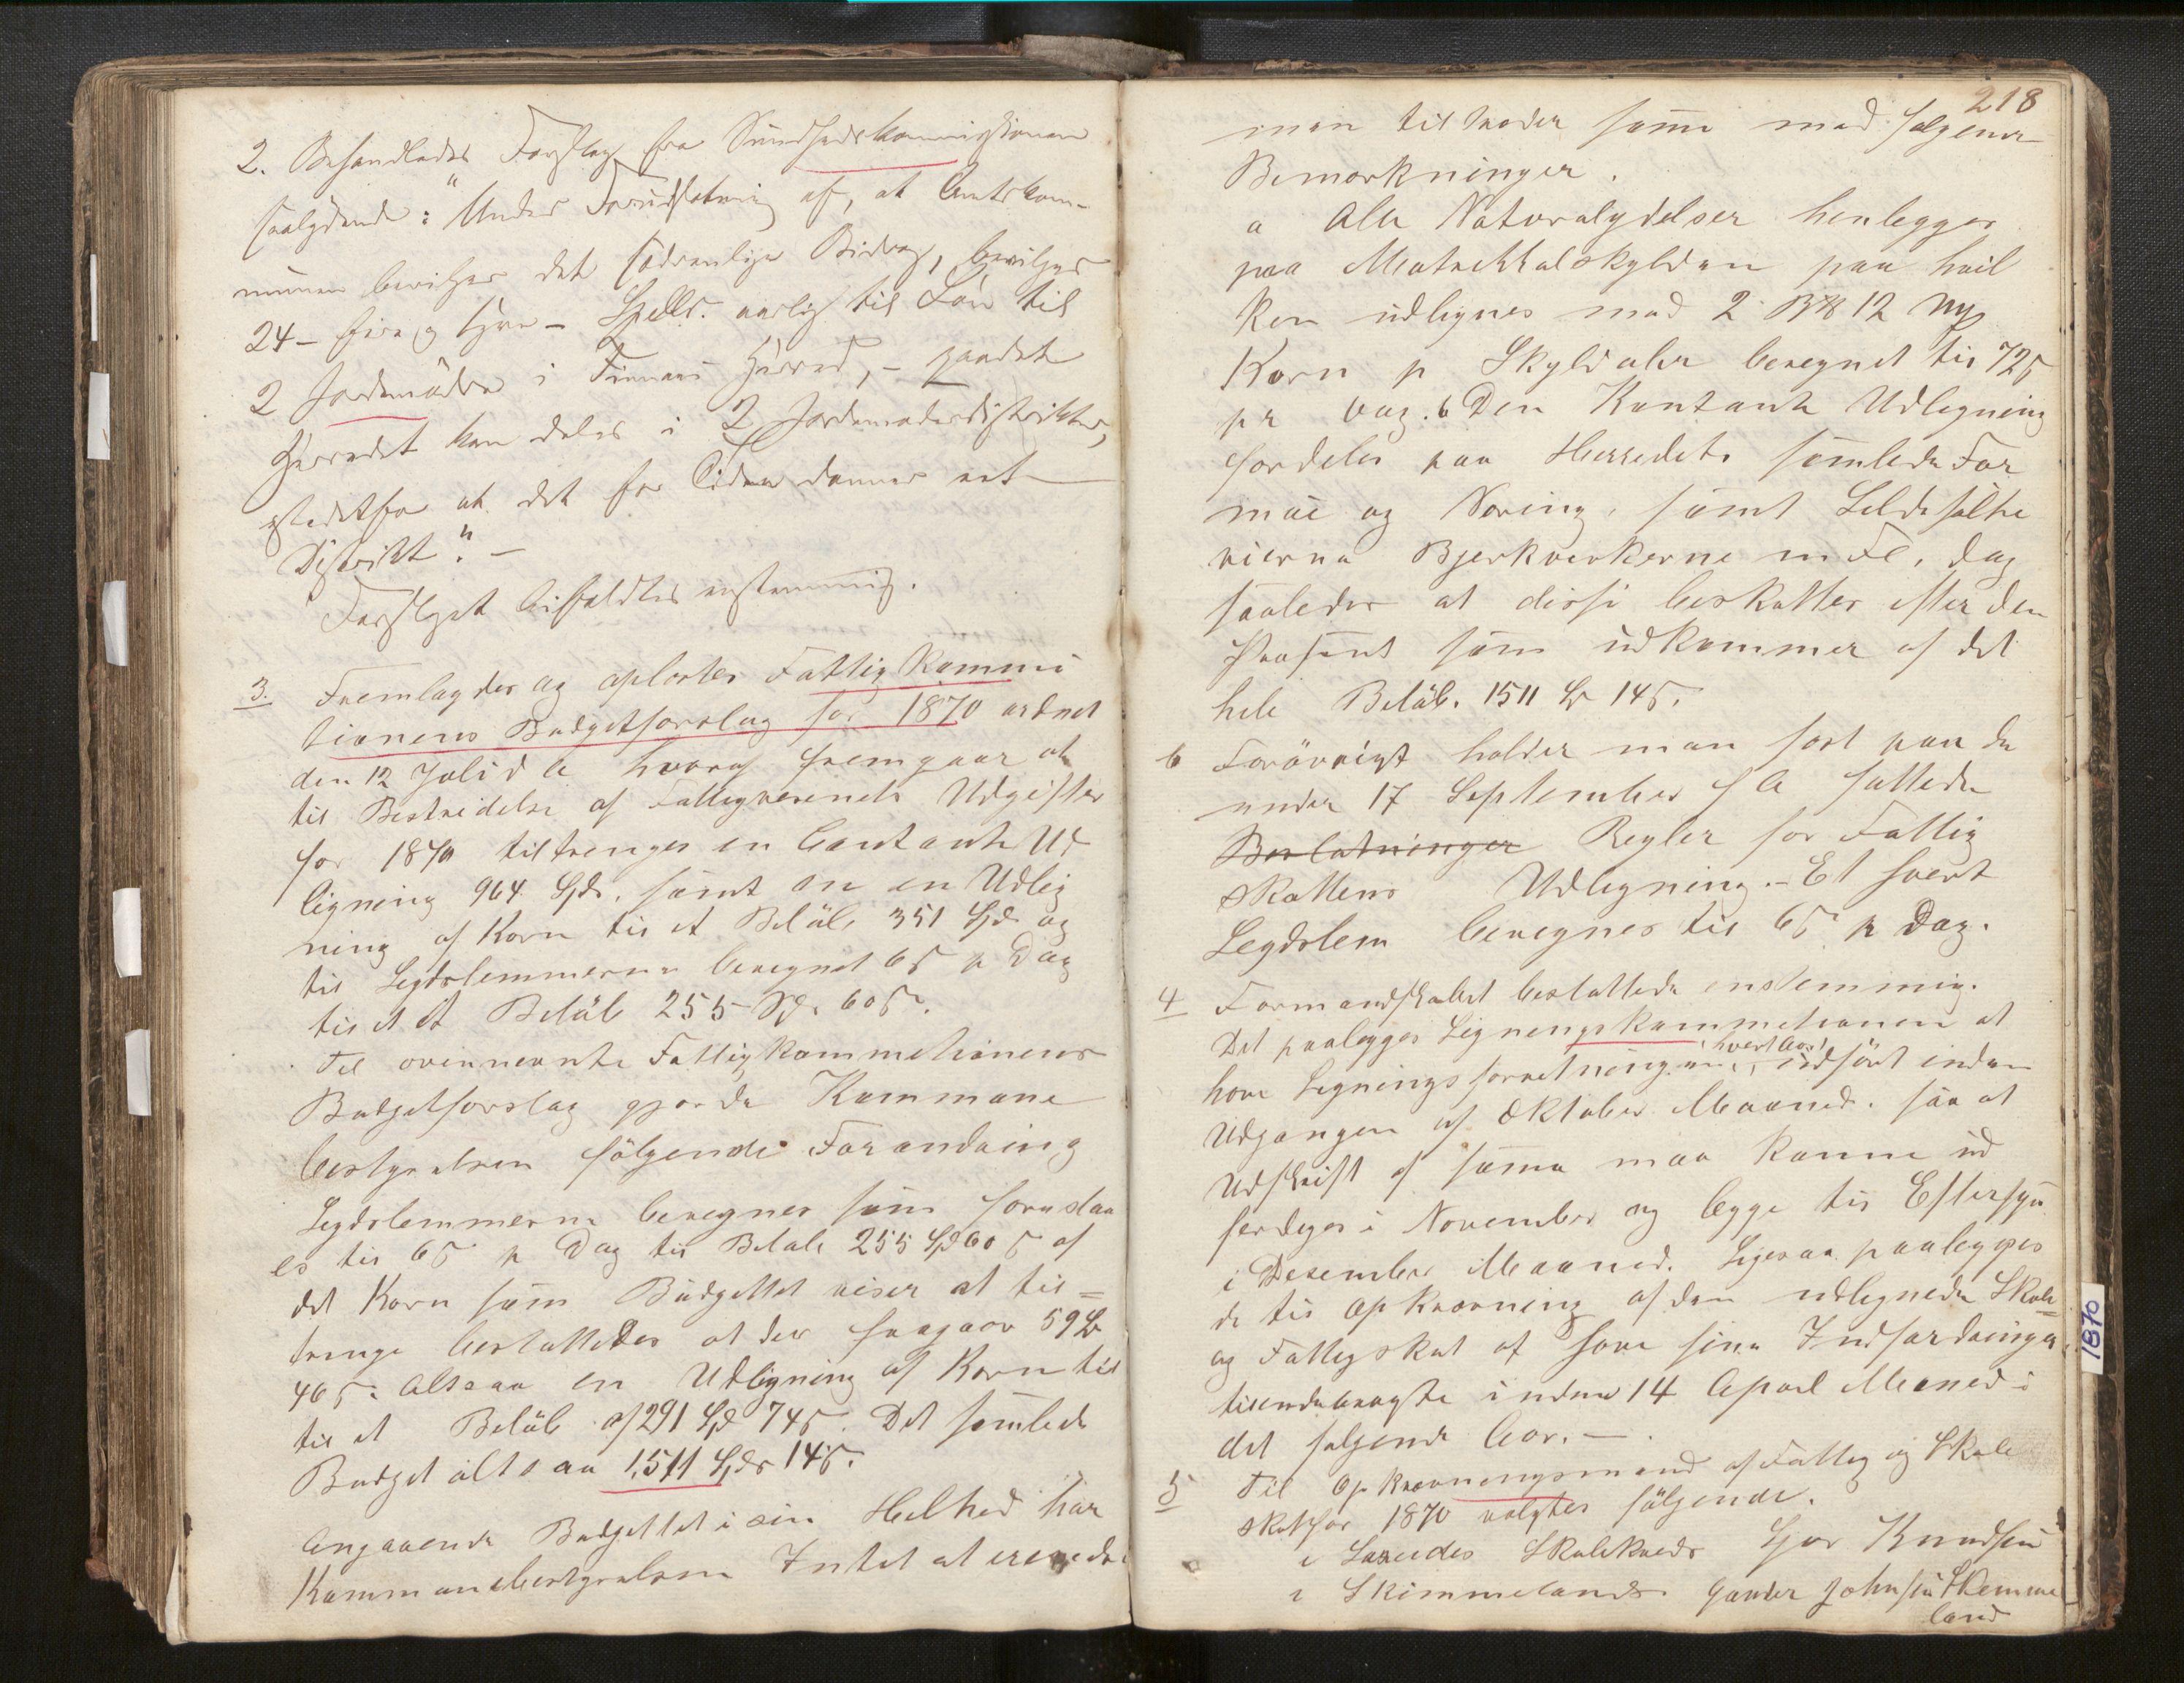 2. Behandledes Forslag fra Sundhedskommissionen
saalydende: "Under Forudsætning af, at Amtskom-
munen bevilger det sædvanlige Bidrag, bevilges
24 - fire og tyve - Spdlr. aarlig til Løn til
2 Jordmødre i Finnaas Herred, - saa at
Herredet kan deles i 2 Jordemoderdistrikter,
istedetfor at det for Tiden danner eet
Distrikt". -
Forslaget bifaldtes enstemmig.
3. Fremlagdes og oplæstes Fattigkommi
tionens Budgetforslag for 1870 ordnet
den 12 Juli d A hvoraf fremgaar at
til Bestridelse af Fattigvesenets Udgifter
for 1870 tiltrenges en Contante Ud
ligning 964 Spd. samt en en Udlig
ning af Korn til et Beløb 351 Spd og
til Legdslemmerne beregnet 6 ß p Dag
til et et Beløb 255 Sp. 60 ß.
Til ovennevnte Fattigkommetionens
Budgetforslag gjorde Kommune
bestyrelsen følgende Forandring
Legdslemmerne beregnes som foreslaa
es til 6 ß p Dag til Beløb 255 Spd 60 ß af
det Korn som Budgettet viser at til=
trenge besluttedes at der fragaar 59 Sp
46 ß. Altsaa en Udligning af Korn til
til et Beløb af 291 Spd 74 ß. Det samlede
Budget altsaa 1,511 Spdr 14 ß.
Angaaende Budgettet i sin Helhed har
Kommunebestyrelsen Intet at erindre
218
men tiltræder samme med følgende
Bemærkninger.
a Alle Naturalydelser henlegges
paa Matrikkelskylden paa hvil
ken udlignes med 2 12
Korn p Skyldaler beregnet til 72 ß
pr Vog. b Den Kontante Udligning
fordeles paa Herredets samlede For
mue og Næring, samt Sildesalte
rierne Bjerkverkerne m Fl, dog
saaledes at disse beskattes efter den
Prosent som udkommer af det
hele Beløb. 1511 Sp 14 ß.
b Forøvrigt holder man fast paa de
under 17 September f A fattede
Beslutninger Regler for Fattig
skattens Udligning. - Et hvert
Legdslem beregnes til 6 ß p Dag.
4 Formandskabet besluttede enstemmig.
Det paalegges Ligningskommetionen at
have Ligningsforretningerne hvert Aar udført inden
Udgangen af Oktober Maaned. saa at
Udskrift af samme maa kunne ud
ferdiges i November og legge til Eftersyn
i Desember Maaned. Ligesaa paalegges
de til Opkrævning af den udlignede Skole=
og Fattigskat at have sine Indfordringer
tilendebragte inden 14 April Maaned i
det følgende Aar. -
5 Til Opkrævningsmend af Fattig og Skole
skat for 1870 valgtes følgende.
i Skolekreds Knudsen
i Skimmelands Gunder Johnsen Skimme
land
1870